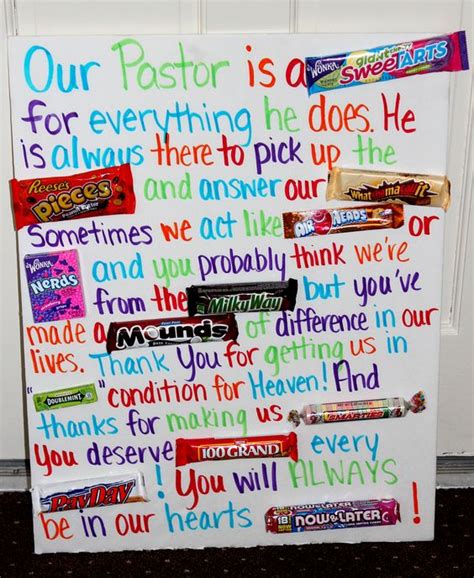 Our Pastor is a WONKA giant chewy SweeTARTS
for everything he does. He
is always there to pick up the
Reese's Pieces and answer our Whatchamacallit
Sometimes we act like AIRHEADS or
WONKA Nerds and you probably think we're
from the Milky Way but you've
made a Mounds of difference in our
lives. Thank You for getting us in
"DOUBLEMINT" condition for Heaven! And
thanks for making us SMARTIES
You deserve 100 GRAND every
PayDay! You will ALWAYS
be in our hearts NOW and LATER!